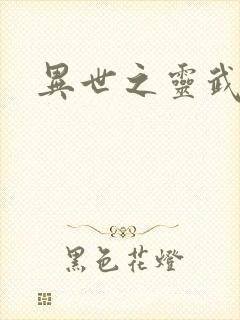 異世之靈武
黑色花燈